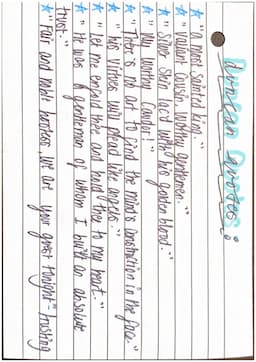 Duncan Quotes:
"A most sainted king."
"Valiant cousin, worthy gentlemen."
"Silver skin laced with his golden blood."
"My worthy Cawdor!"
"There is no art to find the mind's construction in the face."
"his virtues will plead like angels"
"Let me enfold thee and hold thee to my heart."
"It was a gentleman of whom I built an absolute
trust."
"Fair and noble hostess, we are your guest tonight" trusting